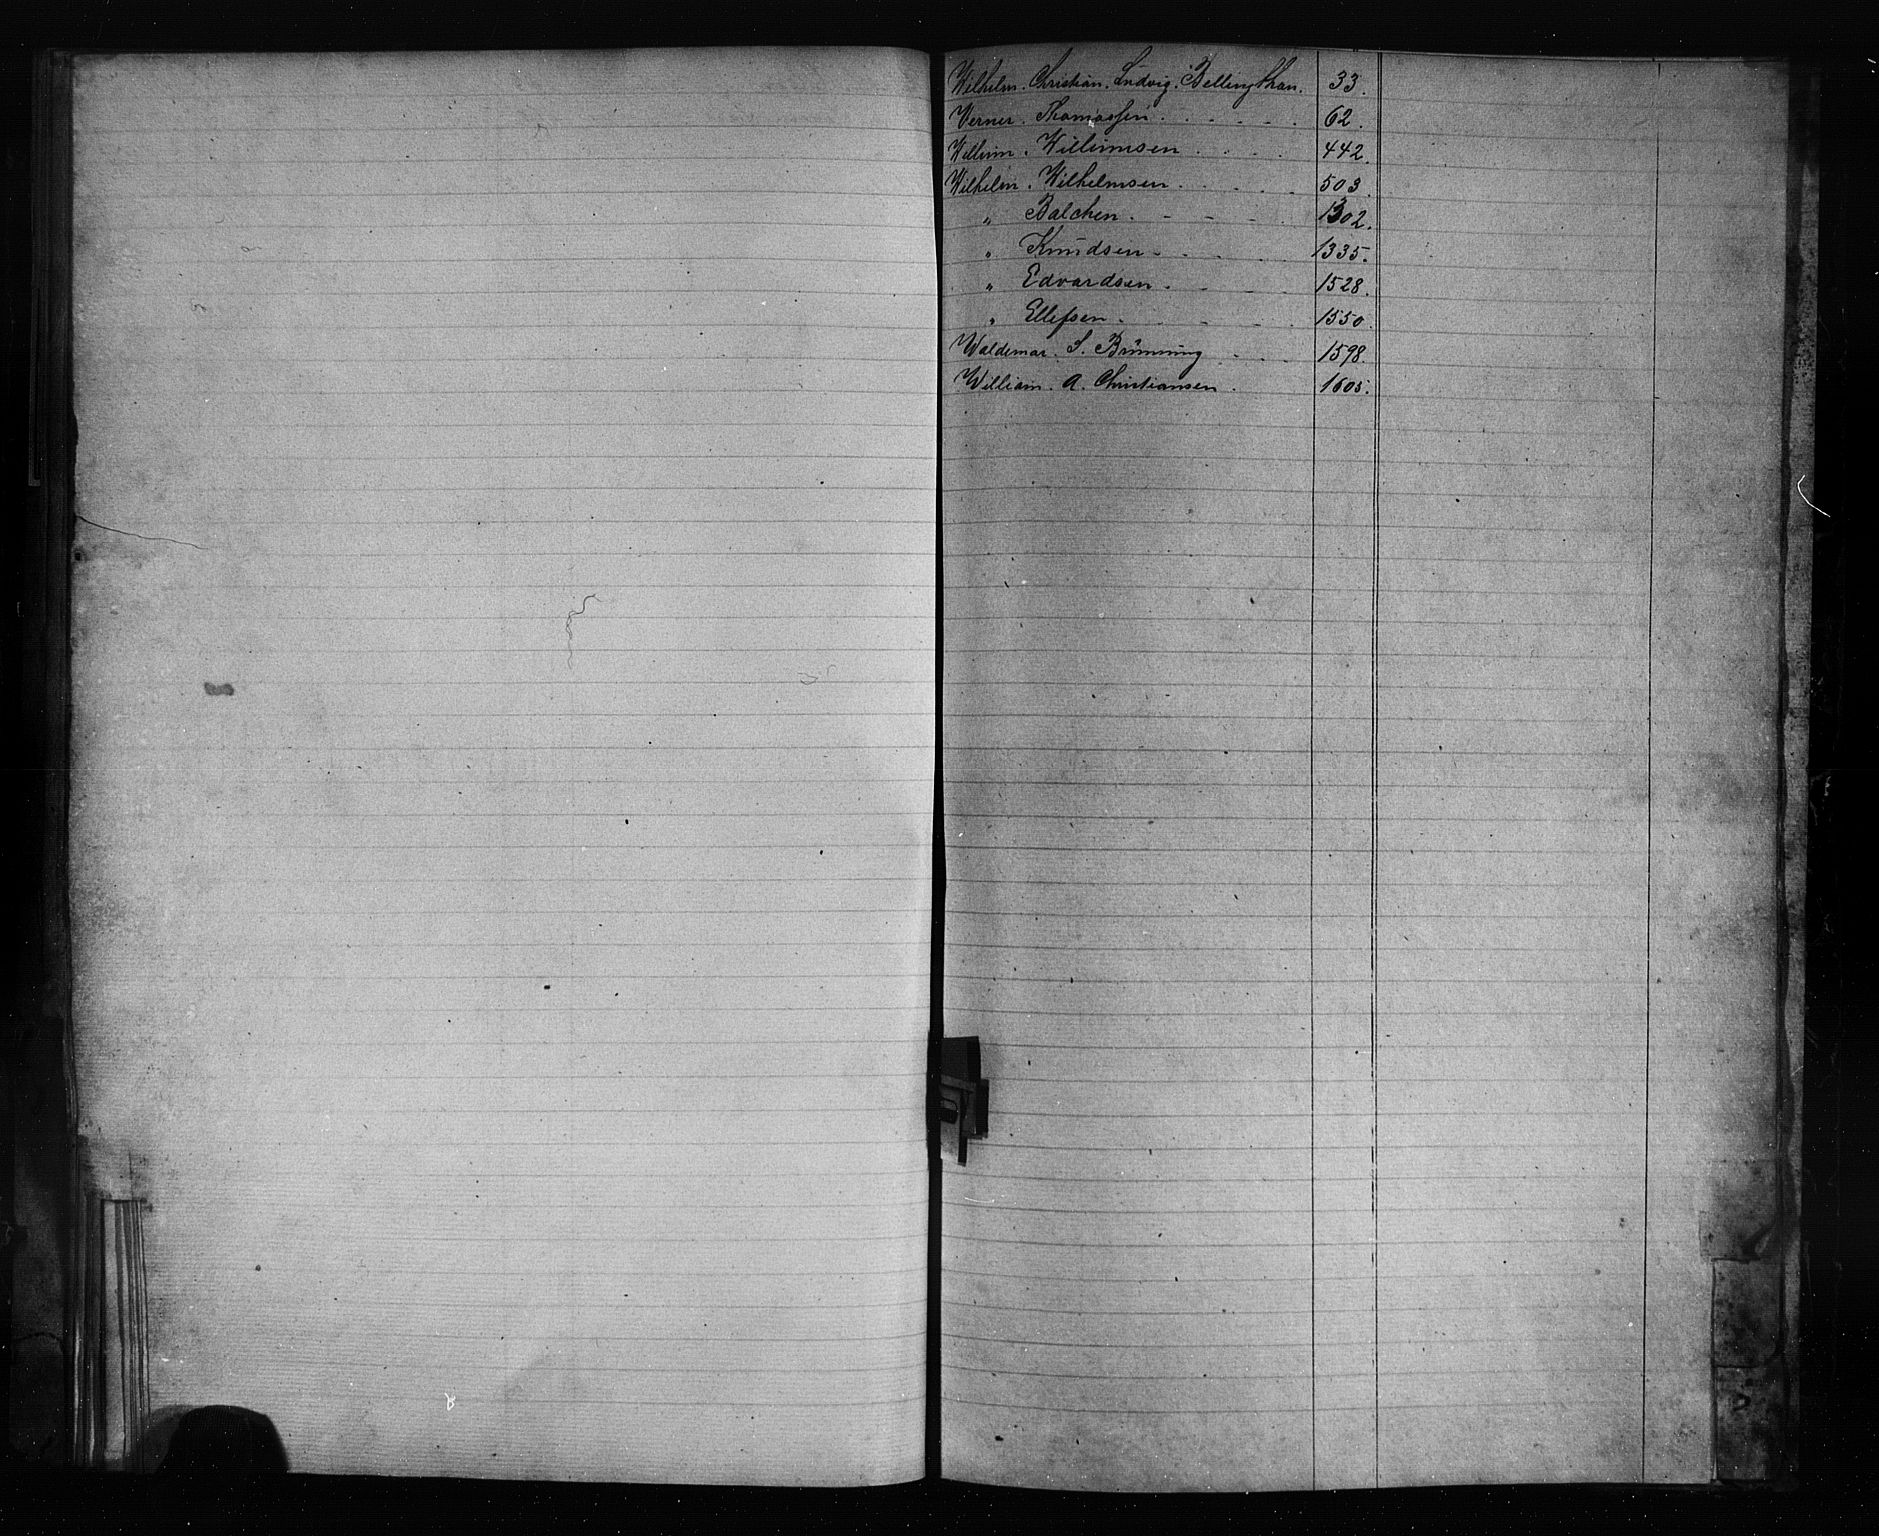 Wilhelm. Christian. Ludvig. Bellingthan. 33.
Verner. Thomassen. 62.
Willum. Willumsen 442.
Wilhelm. Wilhelmsen. 503.
„ Balchen. 1302.
„ Knudsen. 1335.
„ Edvardsen. 1528.
„ Ellefsen. 1550.
Waldemar. S. Brünning 1598.
William. A. Christiansen. 1605.